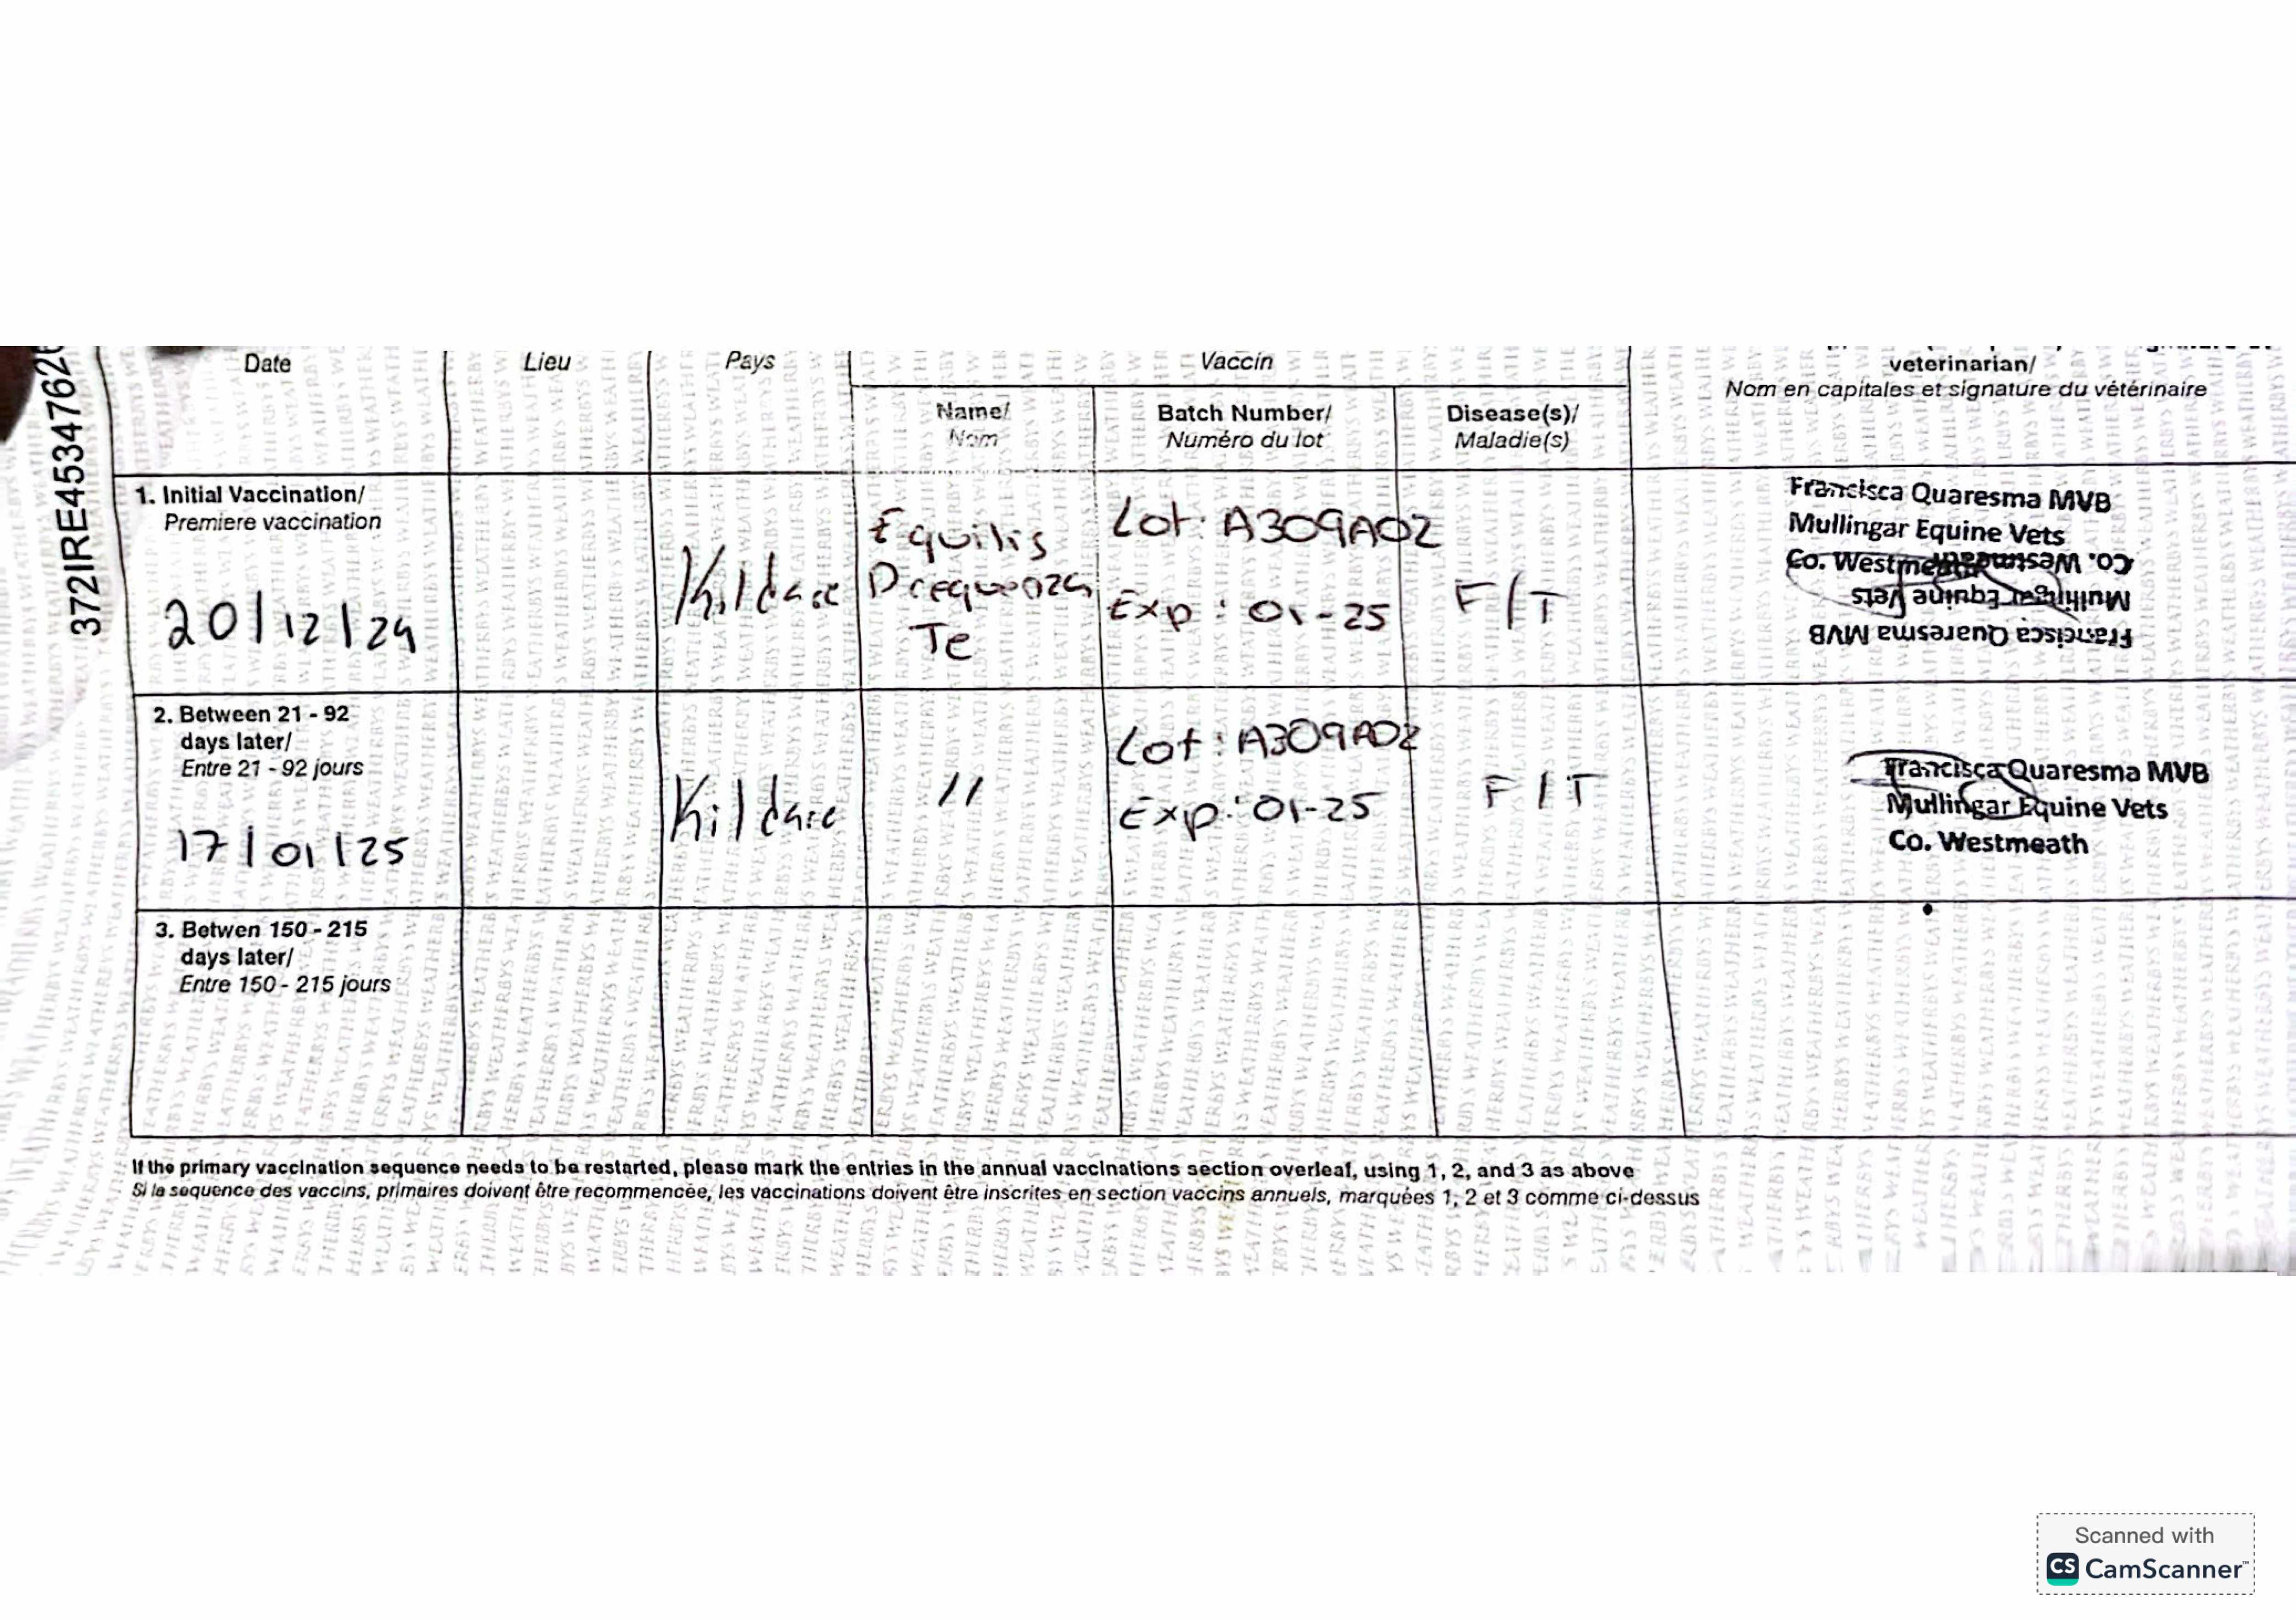 372IRE4534762
Date
Lieu
Pays
Vaccin
veterinarian/
Nom en capitales et signature du vétérinaire
Name/
Nom
Batch Number/
Numéro du lot
Disease(s)/
Maladie(s)
1. Initial Vaccination/
Premiere vaccination
20/12/24
Kildare
Equilis
Prequenza
Te
Lot: A309A02
Exp: 01-25
F/T
Francisca Quaresma MVB
Mullingar Equine Vets
Co. Westmeath
Francisca Quaresma MVB
Mullingar Equine Vets
Co. Westmeath
2. Between 21 - 92
days later/
Entre 21 - 92 jours
17/01/25
Kildare
//
Lot: A309A02
Exp: 01-25
F/T
Francisca Quaresma MVB
Mullingar Equine Vets
Co. Westmeath
3. Betwen 150 - 215
days later/
Entre 150 - 215 jours
If the primary vaccination sequence needs to be restarted, please mark the entries in the annual vaccinations section overleaf, using 1, 2, and 3 as above
Si la sequence des vaccins, primaires doivent être recommencée, les vaccinations doivent être inscrites en section vaccins annuels, marquées 1, 2 et 3 comme ci-dessus
Scanned with
CS CamScanner™